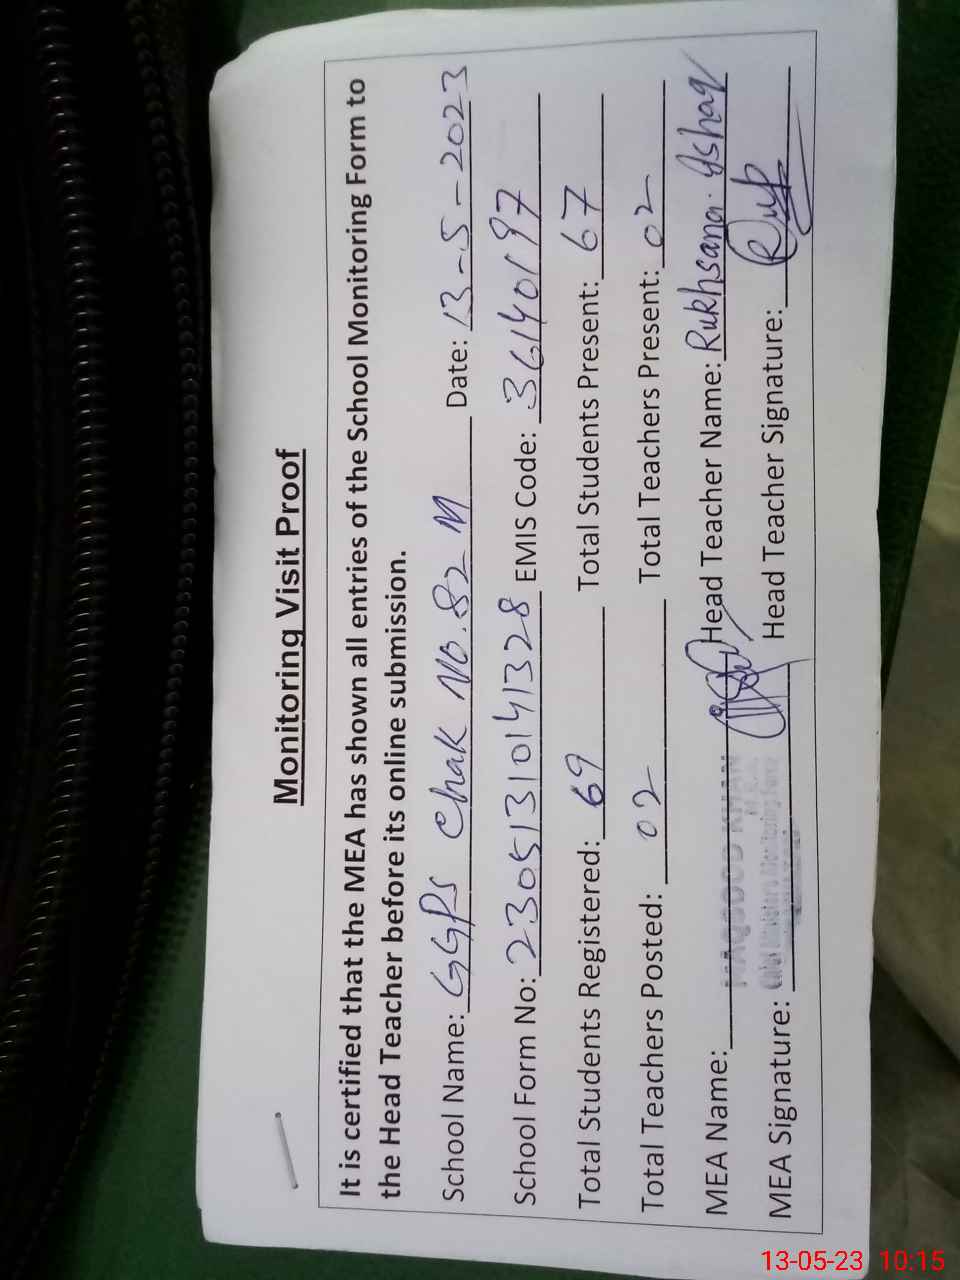 Monitoring Visit Proof
It is certified that the MEA has shown all entries of the School Monitoring Form to
the Head Teacher before its online submission.
School Name: GGPS Chak No. 82 M Date: 13-5-2023
School Form No: 23051310141328 EMIS Code: 36140197
Total Students Registered: 69 Total Students Present: 67
Total Teachers Posted: 02 Total Teachers Present: 02
MEA Name: MAQSOOD KHAN Head Teacher Name: Rukhsana Ishaq
MEA Signature: Head Teacher Signature:
13-05-23 10:15